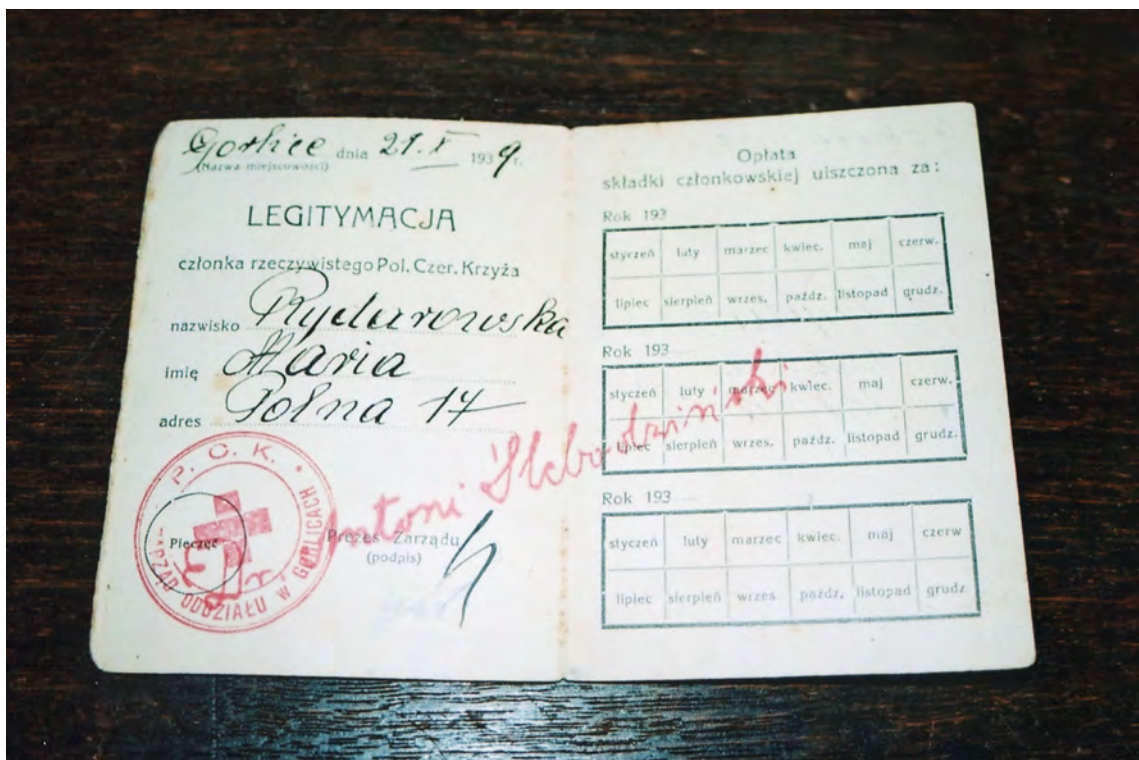 Gorlice dnia 21.X 1939 r.
(Nazwa miejscowości)
LEGITYMACJA
członka rzeczywistego Pol. Czer. Krzyża
nazwisko Rydarowska
imię Maria
adres Polna 17
P. C. K. • ZARZĄD ODDZIAŁU W GORLICACH
Pieczęć
Dr Antoni Ślebodziński
Prezes Zarządu
(podpis)
Opłata
składki członkowskiej uiszczona za:
Rok 193
styczeń luty marzec kwiec. maj czerw.
lipiec sierpień wrzes. paźdz. listopad grudz.
Rok 193
styczeń luty marzec kwiec. maj czerw.
lipiec sierpień wrzes. paźdz. listopad grudz.
Rok 193
styczeń luty marzec kwiec. maj czerw
lipiec sierpień wrzes paźdz. listopad grudz